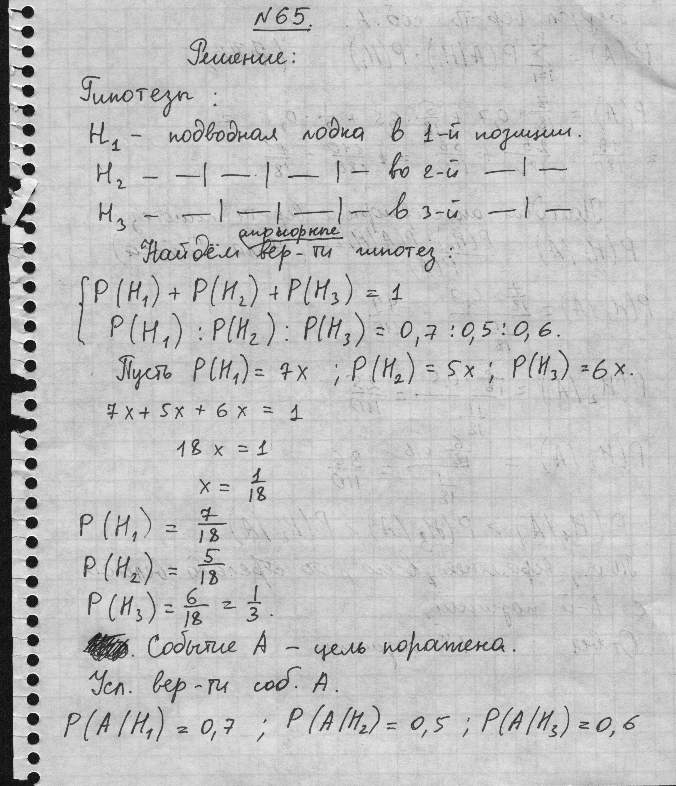 №65.
Решение:
Гипотезы:
H₁ – подводная лодка в 1-й позиции.
H₂ – —|—|—|— во 2-й —|—
H₃ – —|—|—|— в 3-й —|—
априорные
Найдём вер-ти гипотез:
P(H₁) + P(H₂) + P(H₃) = 1
P(H₁) : P(H₂) : P(H₃) = 0,7 : 0,5 : 0,6.
Пусть P(H₁) = 7x ; P(H₂) = 5x ; P(H₃) = 6x.
7x + 5x + 6x = 1
18x = 1
x = 1/18
P(H₁) = 7/18
P(H₂) = 5/18
P(H₃) = 6/18 = 1/3.
Событие A – цель поражена.
Усл. вер-ти соб. A.
P(A/H₁) = 0,7 ; P(A/H₂) = 0,5 ; P(A/H₃) = 0,6